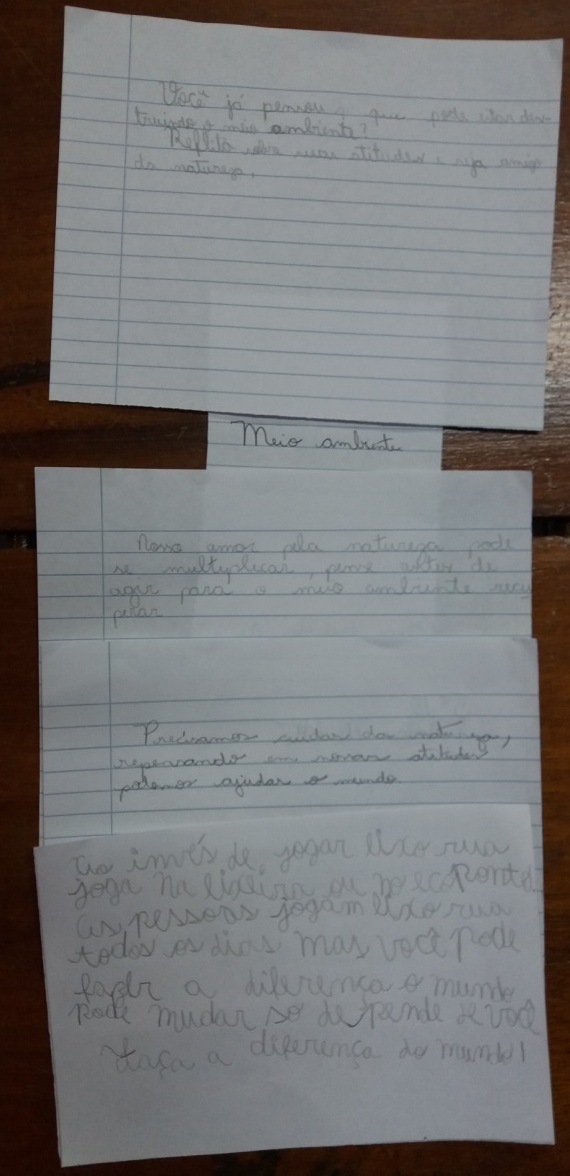 Você já pensou que pode estar des-
truindo o meio ambiente?
Reflita sobre suas atitudes e seja amigo
da natureza.
Meio ambiente
Nosso amor pela natureza pode
se multiplicar, pense antes de
agir para o meio ambiente recu
perar
Precisamos cuidar da natureza,
repensando em nossas atitudes
podemos ajudar o mundo.
Ao invés de jogar lixo rua
joga na lixeira ou no ecoponto
as pessoas jogam lixo rua
todos os dias mas você pode
fazer a diferença o mundo
pode mudar só depende de você
faça a diferença do mundo!